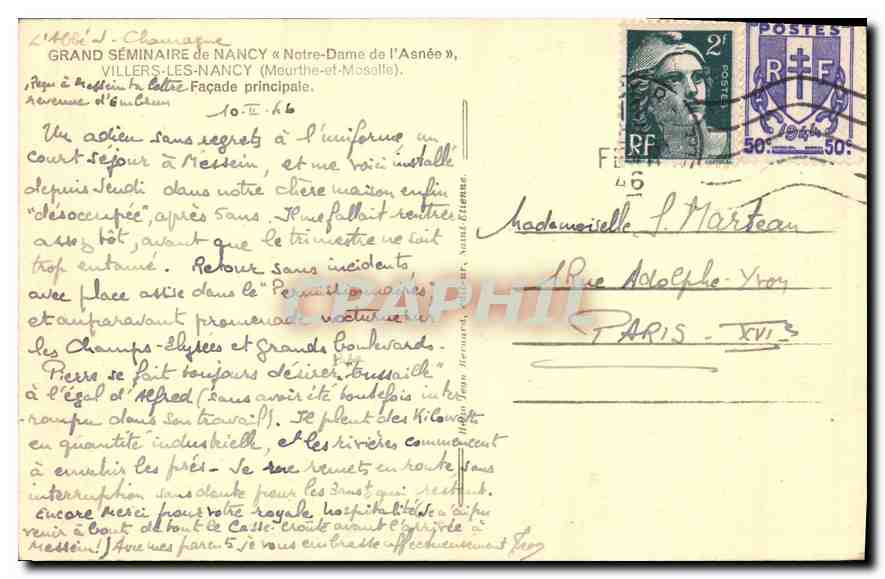 L'Abbé J. Champagne
GRAND SÉMINAIRE de NANCY « Notre-Dame de l'Asnée »,
VILLERS-LES-NANCY (Meurthe-et-Moselle).
Façade principale.
Reçu à Messein ta lettre
revenue d'Embrun
10-II-46
Un adieu sans regrets à l'uniforme, un
court séjour à Messein, et me voici installé
depuis Jeudi dans notre chère maison enfin
"désoccupée", après 5 ans. Il me fallait rentrer
assez tôt, avant que le trimestre ne soit
trop entamé. Retour sans incidents
avec place assise dans le "Permissionnaires"
et auparavant promenade nocturne sur
les Champs-Elysées et Grands boulevards.
Pierre se fait toujours désirer
à l'égal d'Alfred (sans avoir été toutefois inter-
-rompu dans son travail). Il pleut des Kilowatts
en quantité industrielle, et les rivières commencent
à envahir les prés - Je me remets en route sans
interruption sans doute pour les 3 ans ½ qui restent.
Encore Merci pour votre royale hospitalité (Je n'ai pu
venir à bout de tout le Casse-croûte avant l'arrivée à
Messein!) Avec mes parents je vous embrasse affectueusement
2F
POSTES
RF
POSTES
R F
1944
50c 50c
Mademoiselle S. Marteau
1 Rue Adolphe-Yvon
PARIS - XVIe
CPAPHIL